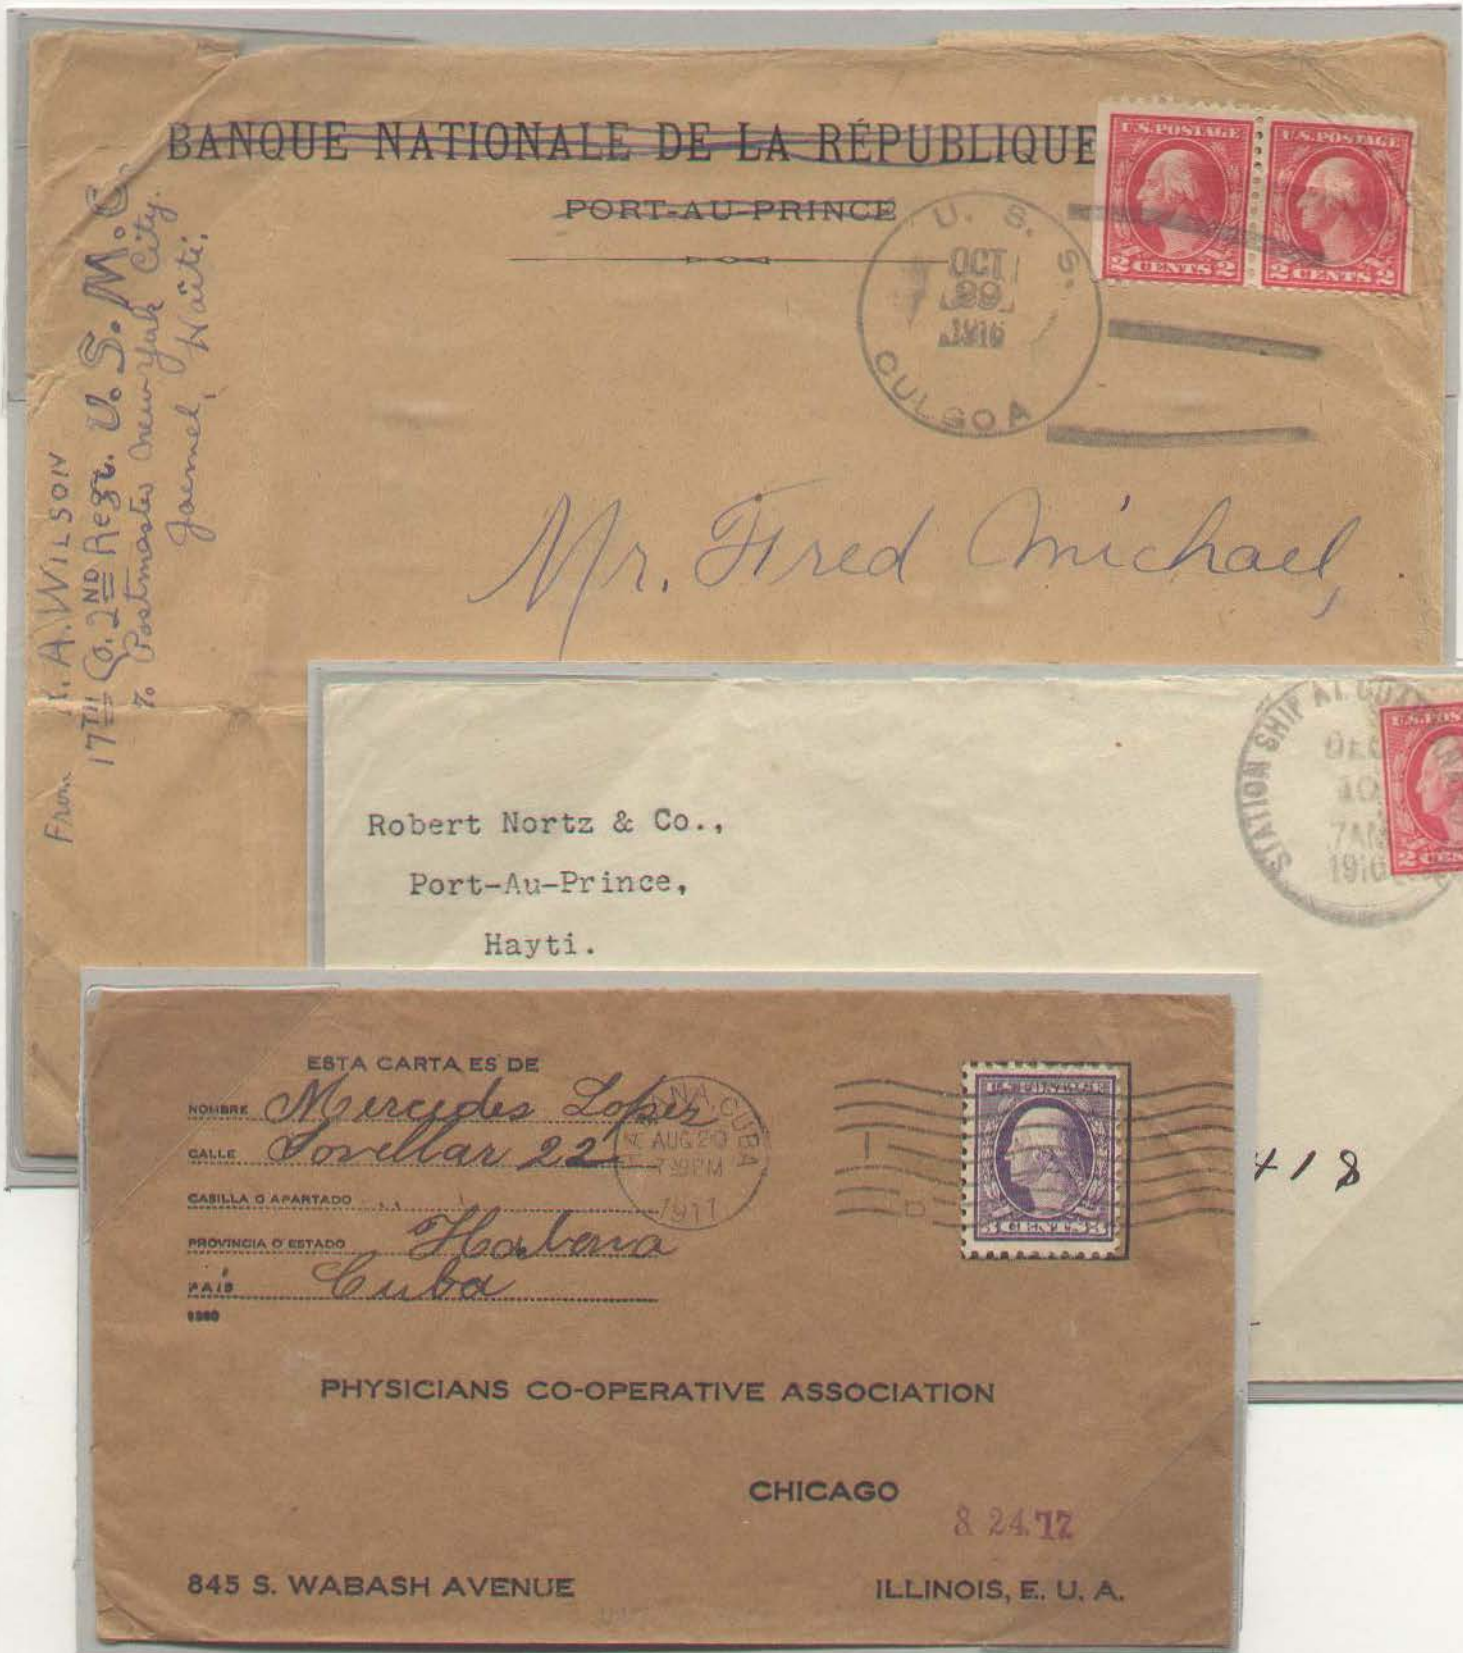 BANQUE NATIONALE DE LA RÉPUBLIQUE
PORT-AU-PRINCE
U.S. POSTAGE
2 CENTS 2
U.S. POSTAGE
2 CENTS 2
U. S. S.
OCT
29
1916
CULGOA
From A. WILSON
17TH Co. 2ND Regt. U.S.M.C.
% Postmaster New York City.
Jacmel, Haiti.
Mr. Fred Michael,
STATION SHIP AT
DEC
10
7AM
1916
Robert Nortz & Co.,
Port-Au-Prince,
Hayti.
418
ESTA CARTA ES DE
NOMBRE Mercedes Lopez
CALLE Jovellar 22
CASILLA O APARTADO
PROVINCIA O ESTADO Habana
PAIS Cuba
HABANA, CUBA
AUG 20
1917
3 CENTS 3
PHYSICIANS CO-OPERATIVE ASSOCIATION
CHICAGO
8 24.17
845 S. WABASH AVENUE
ILLINOIS, E. U. A.